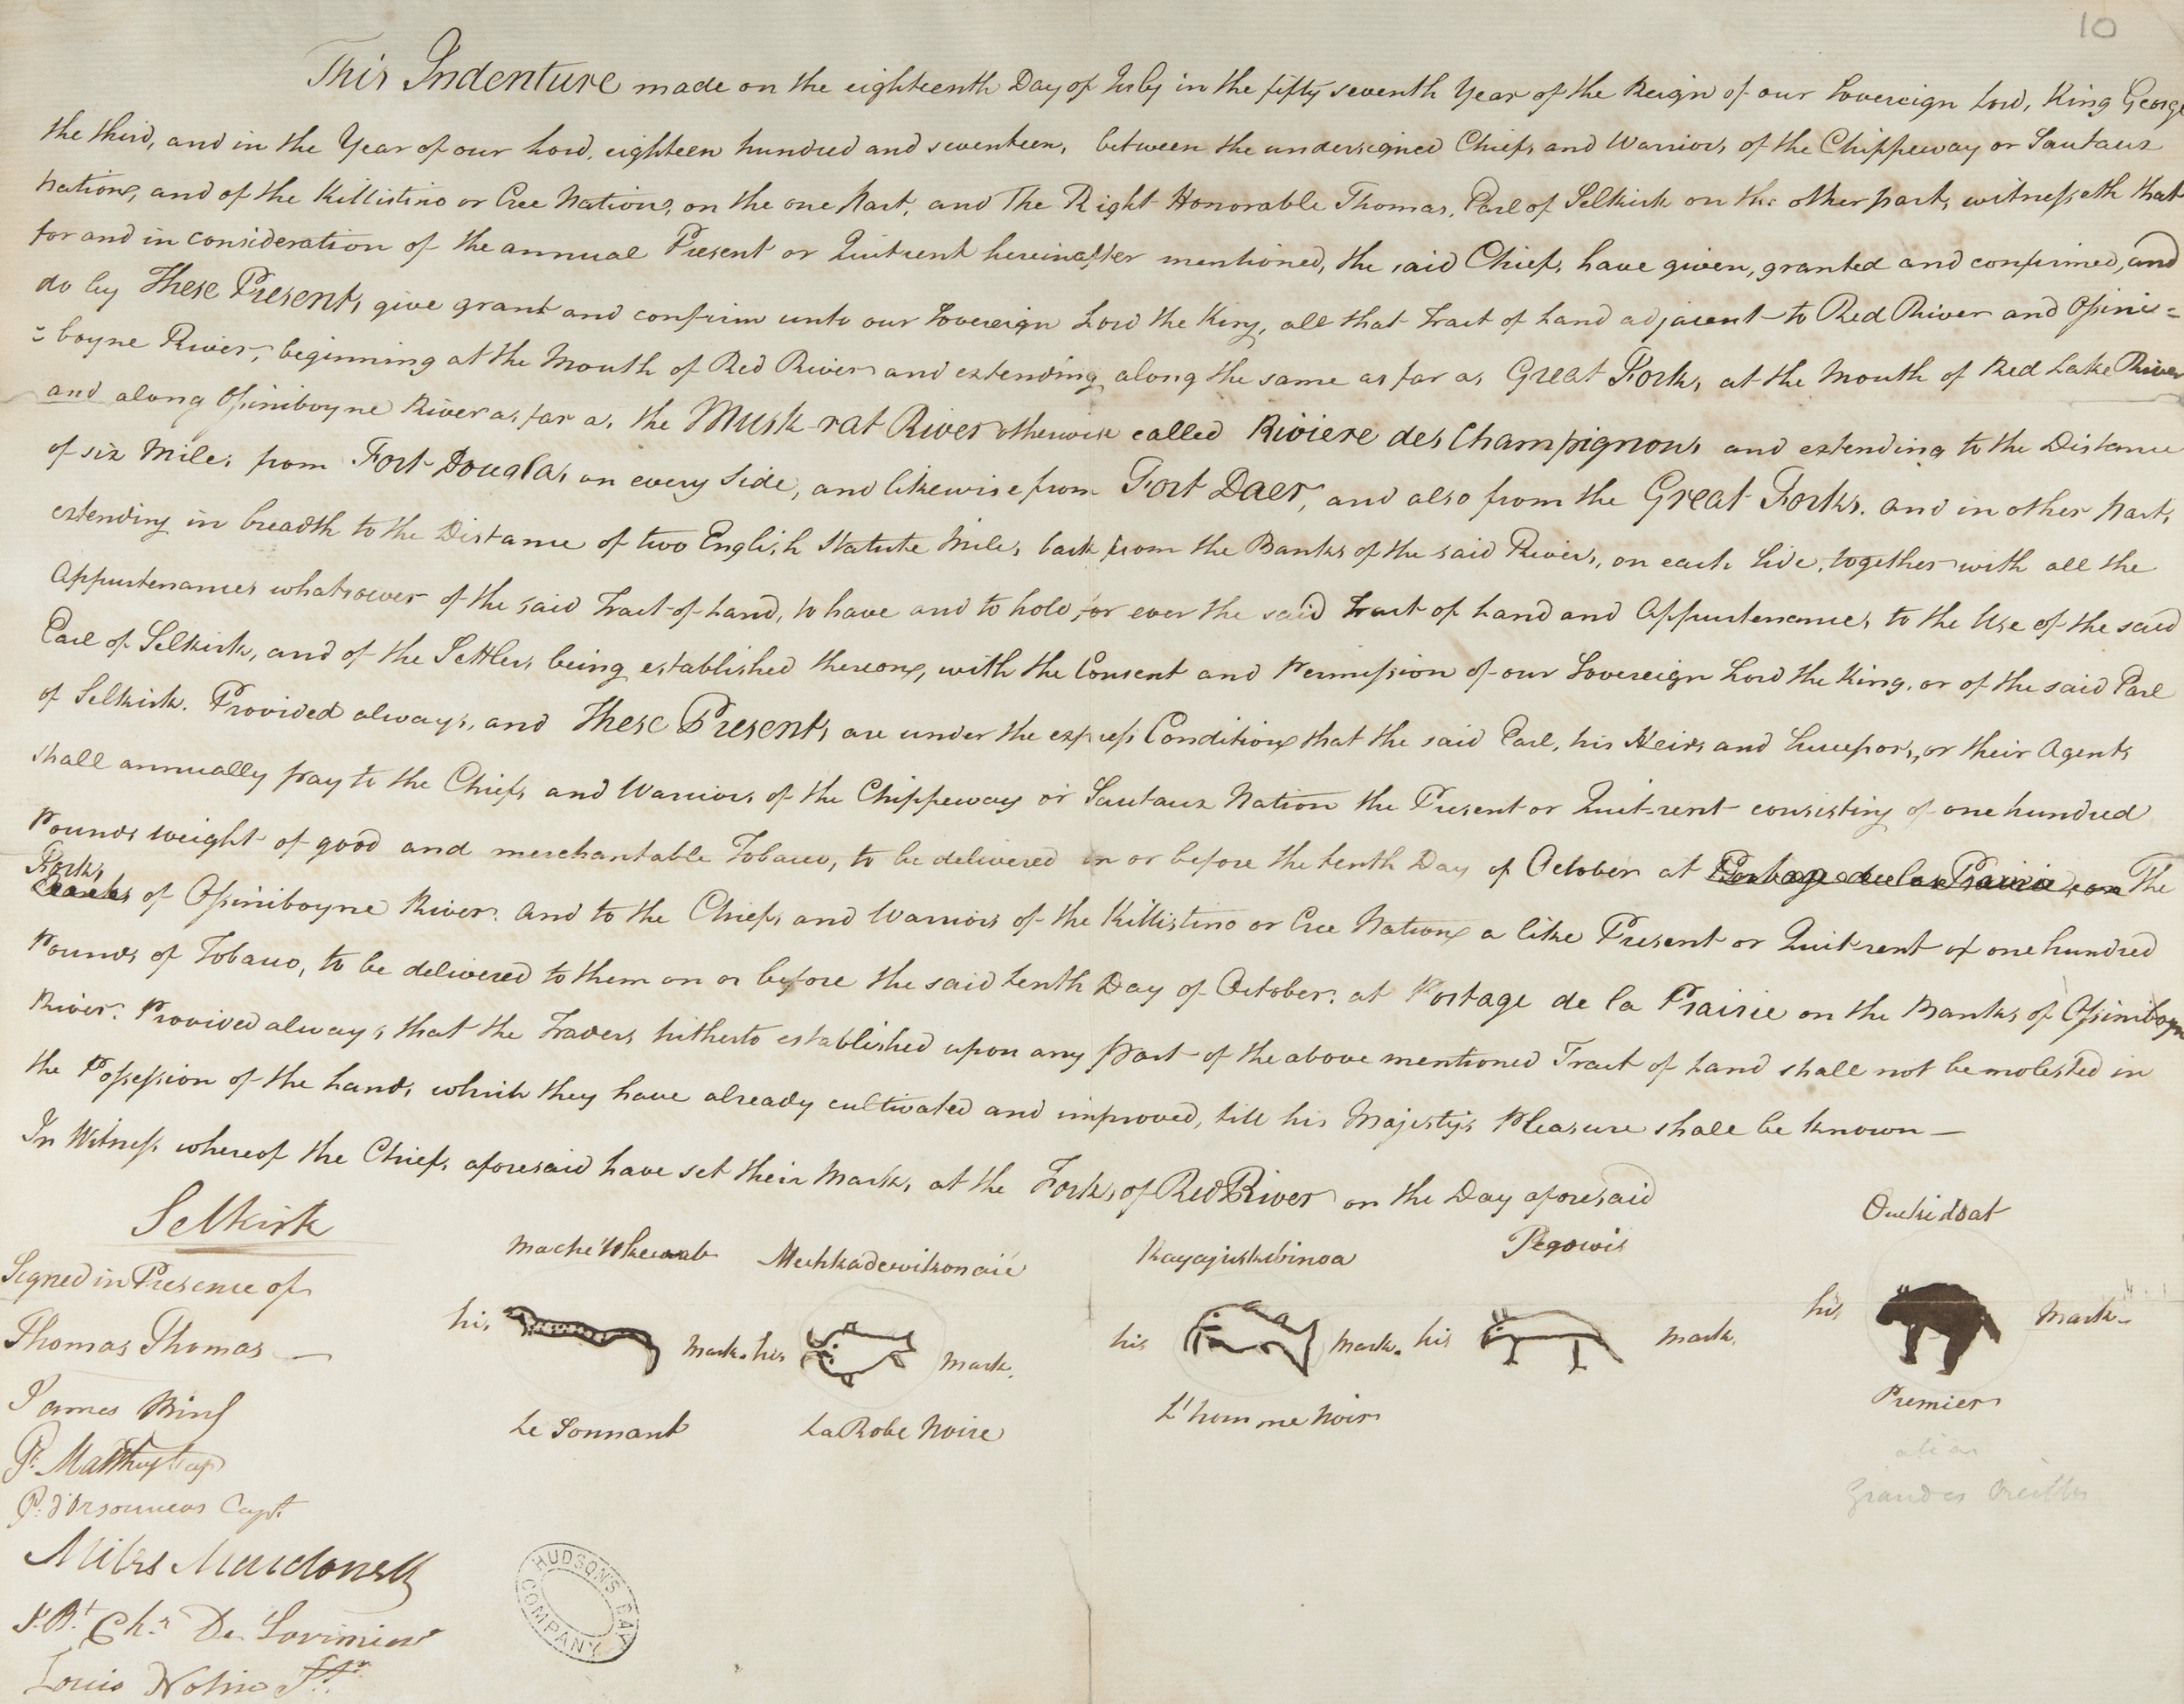 10
This Indenture made on the eighteenth Day of July in the fifty seventh Year of the Reign of our Sovereign Lord, King George
the third, and in the Year of our Lord, eighteen hundred and seventeen, between the undersigned Chiefs and Warriors of the Chippeway or Sautaux
Nation, and of the Killistino or Cree Nation, on the one Part, and The Right Honorable Thomas, Earl of Selkirk on the other part, witnesseth that
for and in consideration of the annual Present or Quitrent hereinafter mentioned, the said Chiefs have given, granted and confirmed, and
do by These Presents give grant and confirm unto our Sovereign Lord the King, all that Tract of Land adjacent to Red River and Ossini=
=boyne River, beginning at the Mouth of Red River and extending along the same as far as Great Forks at the Mouth of Red Lake River
and along Ossiniboyne River as far as the Musk-rat River otherwise called Riviere des Champignons and extending to the Distance
of six Miles from Fort Douglas on every Side, and likewise from Fort Daer, and also from the Great Forks. and in other Parts
extending in breadth to the Distance of two English Statute Miles back from the Banks of the said Rivers, on each side, together with all the
Appurtenances whatsoever of the said Tract of Land, to have and to hold for ever the said Tract of Land and Appurtenances to the Use of the said
Earl of Selkirk, and of the Settlers being established thereon, with the Consent and Permission of our Sovereign Lord the King, or of the said Earl
of Selkirk. Provided always, and These Presents are under the express Condition that the said Earl, his Heirs and Successors, or their Agents
shall annually pay to the Chiefs and Warriors of the Chippeway or Sautaux Nation the Present or Quit-rent consisting of one hundred
Pounds weight of good and merchantable Tobacco, to be delivered on or before the tenth Day of October at Portage de la Prairie, on The
Forks
Banks of Ossiniboyne River. And to the Chiefs and Warriors of the Killistino or Cree Nation a like Present or Quit-rent of one hundred
Pounds of Tobacco, to be delivered to them on or before the said tenth Day of October, at Portage de la Prairie on the Banks of Ossiniboyne
River. Provided always, that the Traders hitherto established upon any part of the above mentioned Tract of Land shall not be molested in
the Possession of the Lands which they have already cultivated and improved, till his Majesty's Pleasure shall be known—
In Witness whereof the Chiefs aforesaid have set their Marks at the Forks of Red River on the Day aforesaid
Selkirk
Signed in Presence of
Thomas Thomas
James Bird
P. d'Orsonnens Capt.
Miles Macdonell
J. Bt. Chr. De Lorimier
Louis Nolin
Mache Wheseab
his mark.
Le Sonnant
Mechkadewikonaie
his mark.
La Robe Noire
Kayajieskebinoa
his mark.
L'homme Noir
Pegowis
his mark.
Ouckidoat
his mark.
Premier
alias
Grandes Oreilles
HUDSON'S BAY COMPANY